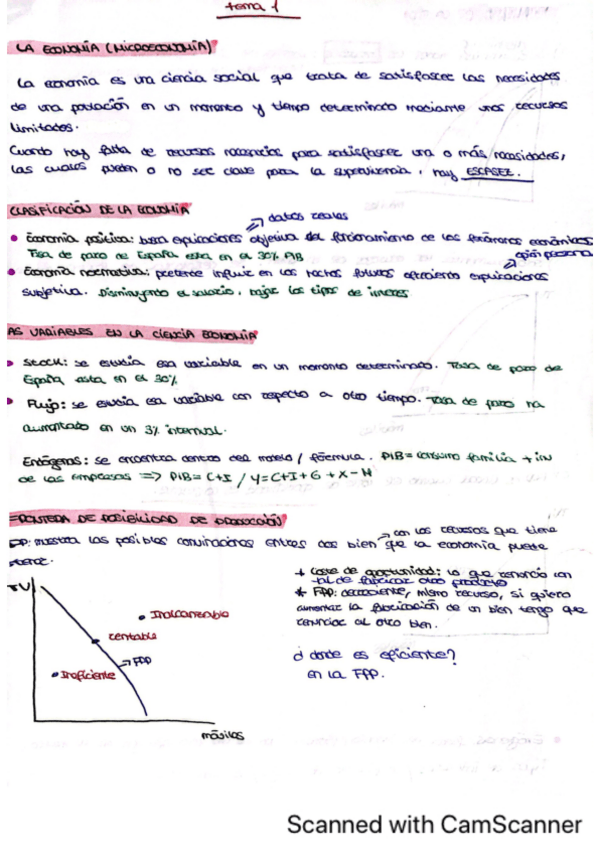 tema 1
LA ECONOMÍA (MICROECONOMÍA)
La economía es una ciencia social que trata de satisfascer las necesidades
de una población en un momento y tiempo determinado mediante unos recursos
limitados.
Cuando hay falta de recursos necesarios para satisfascer una o más necesidades,
las cuales pueden o no ser clave para la supervivencia, hay ESCASEZ.
CLASIFICACIÓN DE LA ECONOMÍA
→ datos reales
• Economía positiva: busca explicaciones objetiva del funcionamiento de los fenómenos económicos
Tasa de paro de España esta en el 30% PIB
opinión personal
• Economía normativa: pretende influir en los hechos futuros ofreciendo explicaciones
subjetiva. Disminuyendo el salario, bajar los tipos de interes
AS VARIABLES EN LA CIENCIA ECONOMÍA
• Stock: se estudia esa variable en un momento determinado. Tasa de paro de
España esta en el 30%
• Flujo: se estudia esa variable con respecto a otro tiempo. Tasa de paro ha
aumentado en un 3% interanual.
Endógenas: se encuentra dentro del modelo / fórmula. PIB = consumo familia + inv
de las empresas => PIB = C+I / Y=C+I+G+X-M
FRONTERA DE POSIBILIDAD DE PRODUCCIÓN
→ con los recursos que tiene
FPP: muestra las posibles combinaciones entres dos bien que la economía puede
+ Coste de oportunidad: lo que renuncio con
tal de fabricar otro producto
* FPP: decreciente, mismo recurso, si quiero
aumentar la fabricación de un bien tengo que
renunciar al otro bien.
¿donde es eficiente?
en la FPP.
TV
• Inalcanzable
rentable
→ FPP
• Ineficiente
misiles
Scanned with CamScanner